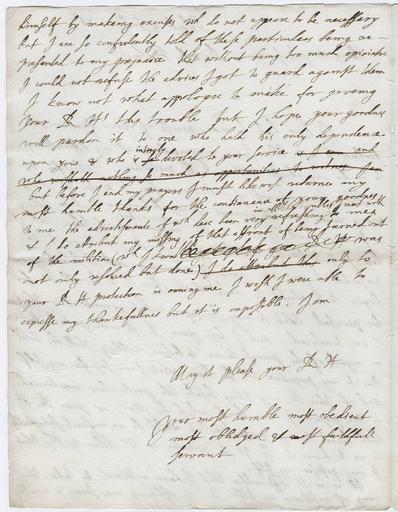 himself by makeing excuses wch do not appear to be necessary
but I am so confidently told of these particulars being re-
presented to my prejudice that without being too much opiniatre
I could not refuse the advices I got to guard against them
I know not what appologie to make for giveing
your R H: this trouble but I hope your goodness
will pardon it to one who hath his only dependence
upon you & who is intirely devoted to your service
but before I end my prayers I must likewise returne my
most humble thanks for the continuance of your goodness
to me. the advertisements of wch has been very refreshing to me
& I do attribut my missing of that affront of being turned out
of the militia (wch I have R H was
not only resolved but done) only to
your R H protection in owning me. I wish I were able to
expresse my thankefullnes but it is impossible. I am
May it please your R H
Your most humble most obedient
most obleidged & most faithfull
servant